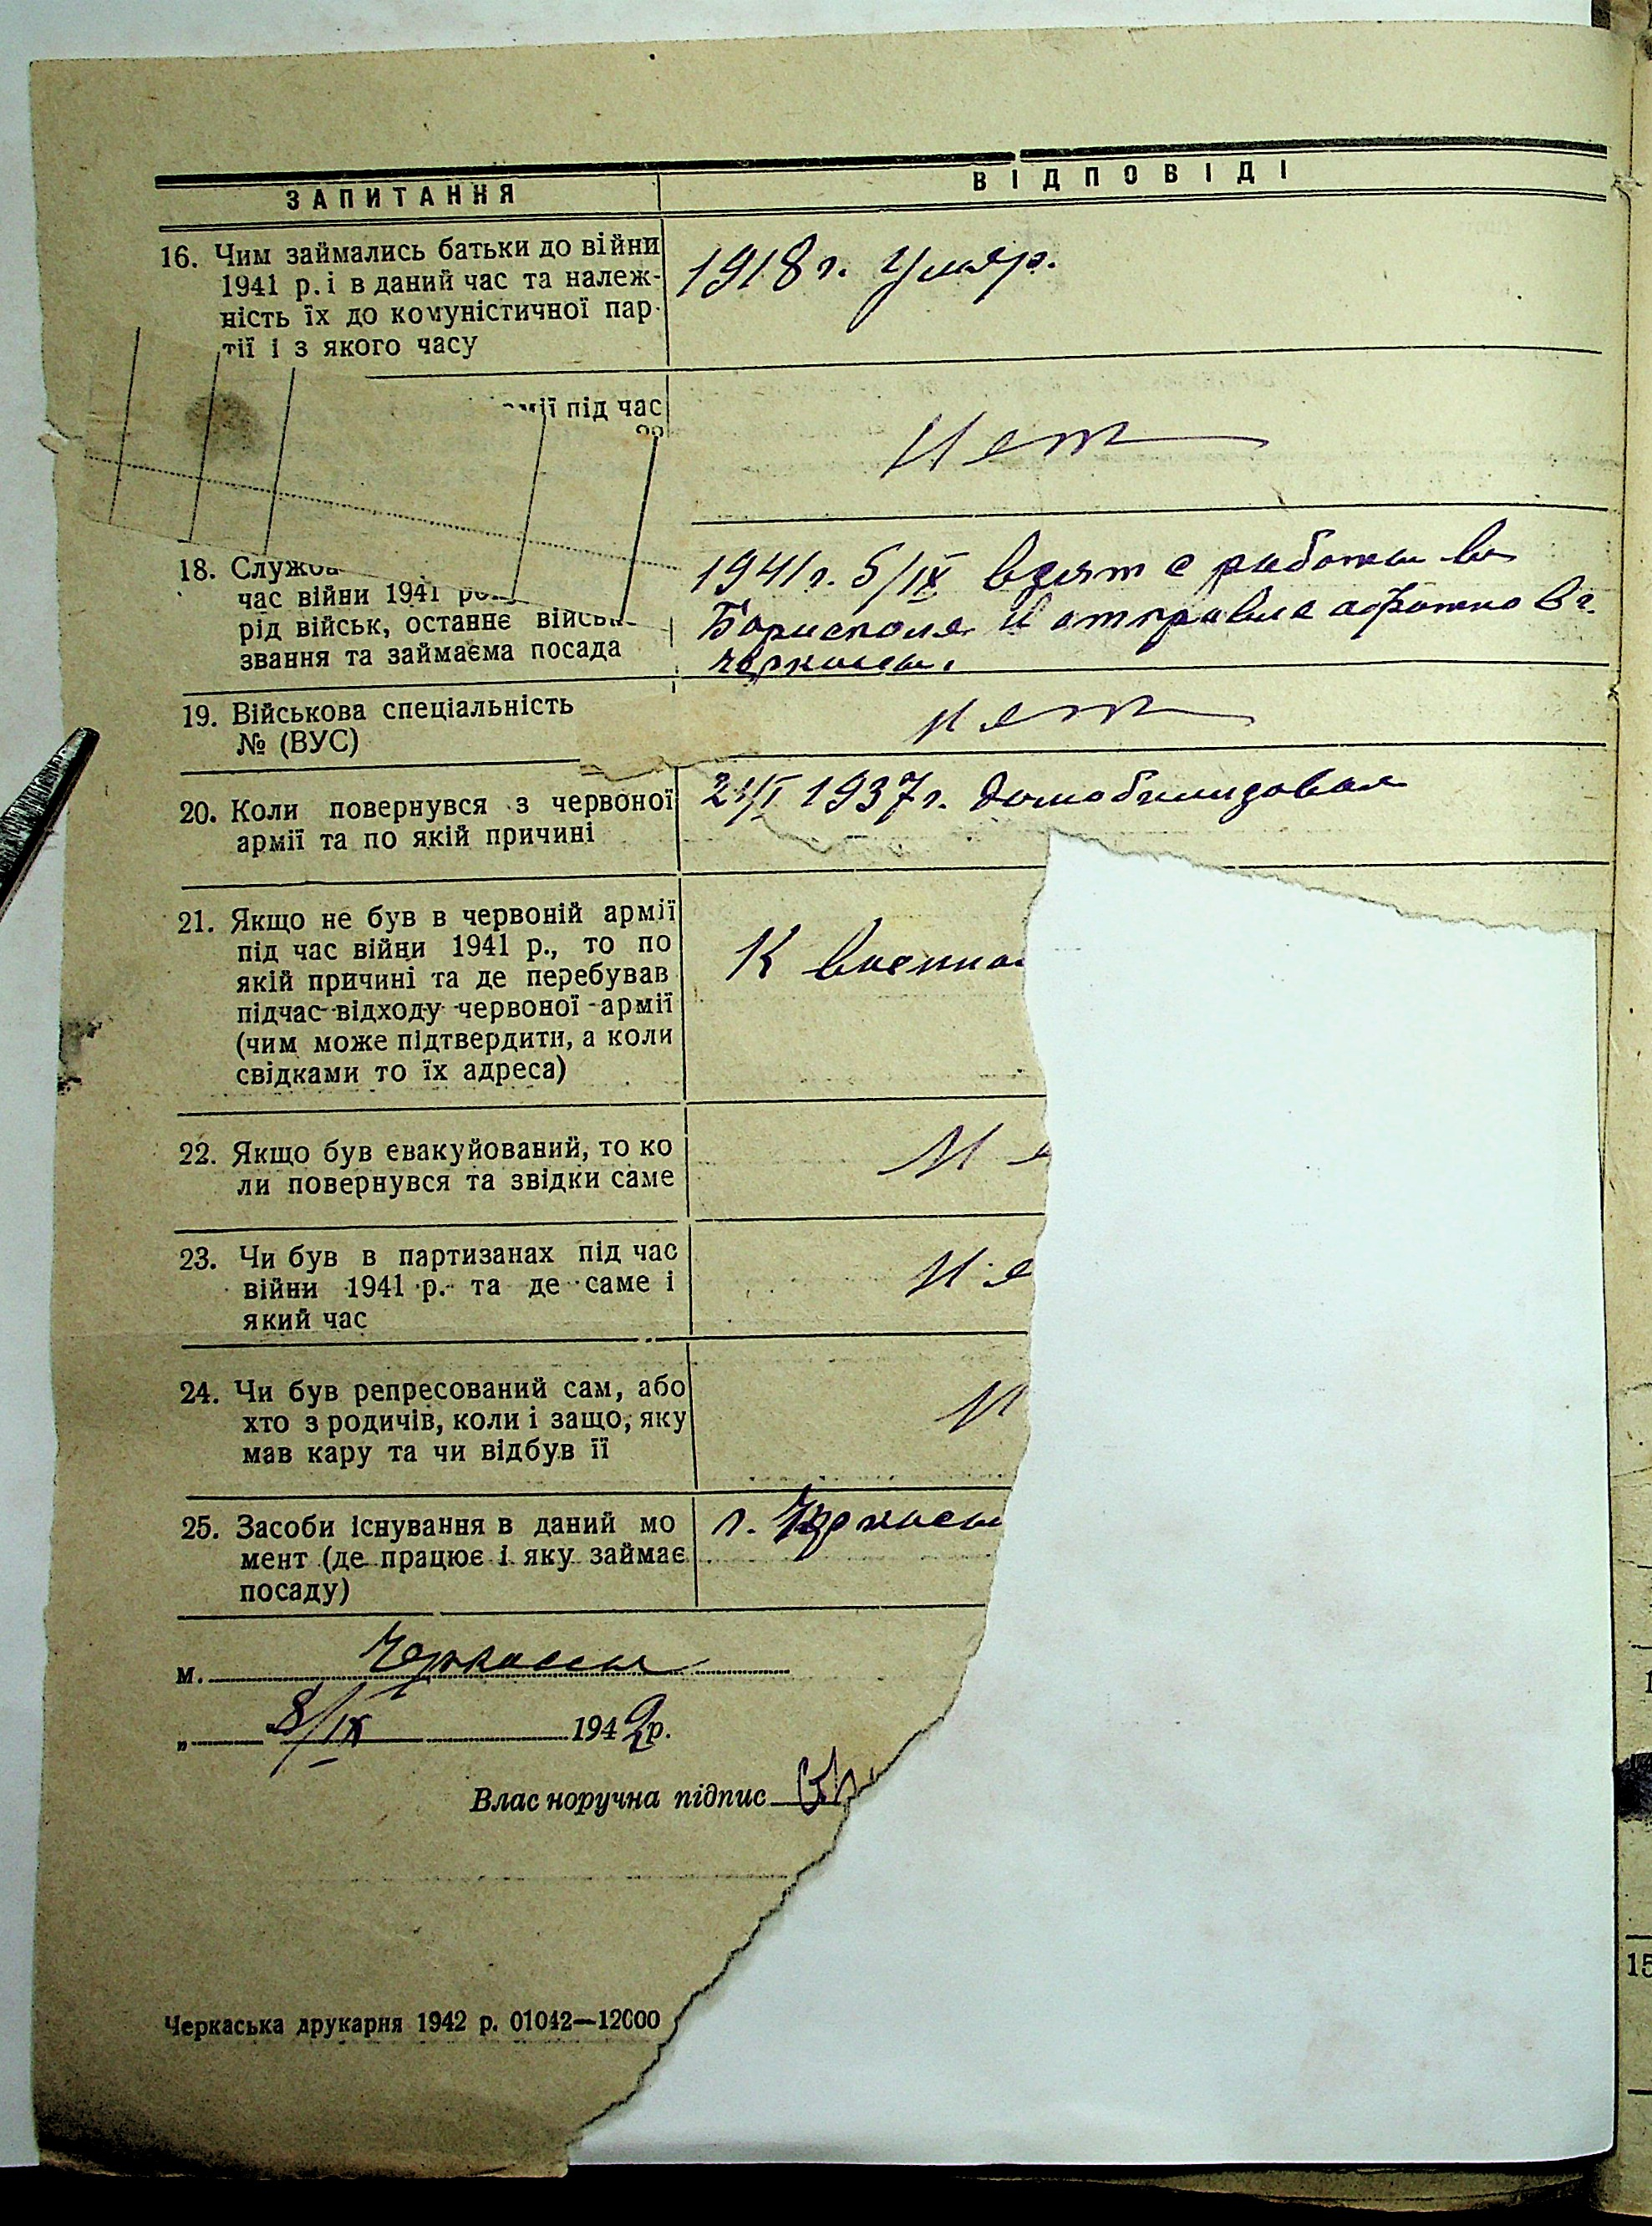 ЗАПИТАННЯ
ВІДПОВІДІ
16. Чим займались батьки до війни
1941 р. і в даний час та належ-
ність їх до комуністичної пар-
тії і з якого часу
1918 г. умер.
під час
Нет
18.
час війни 1941
рід військ, останнє
звання та займаєма посада
1941 г. 5/IX взят с работы в
Борисполя и отправле в г.
Черкассы.
19. Військова спеціальність
№ (ВУС)
нет
20. Коли повернувся з червоної
армії та по якій причині
1937 г.
21. Якщо не був в червоній армії
під час війни 1941 р., то по
якій причині та де перебував
підчас відходу червоної армії
(чим може підтвердити, а коли
свідками то їх адреса)
К
22. Якщо був евакуйований, то ко
ли повернувся та звідки саме
23. Чи був в партизанах під час
війни 1941 р. та де саме і
який час
24. Чи був репресований сам, або
хто з родичів, коли і защо, яку
мав кару та чи відбув її
25. Засоби існування в даний мо
мент (де працює і яку займає
посаду)
г. Черкассы
м. Черкассы
„ 8/IX 1942 р.
Власноручна підпис
Черкаська друкарня 1942 р. 01042—12000
15